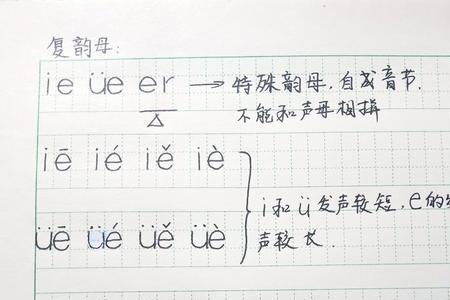 复韵母:
ie üe er → 特殊韵母,自成音节.
不能和声母相拼
iē ié iě iè
üē üé üě üè
i和ü发声较短,e的
声较长.